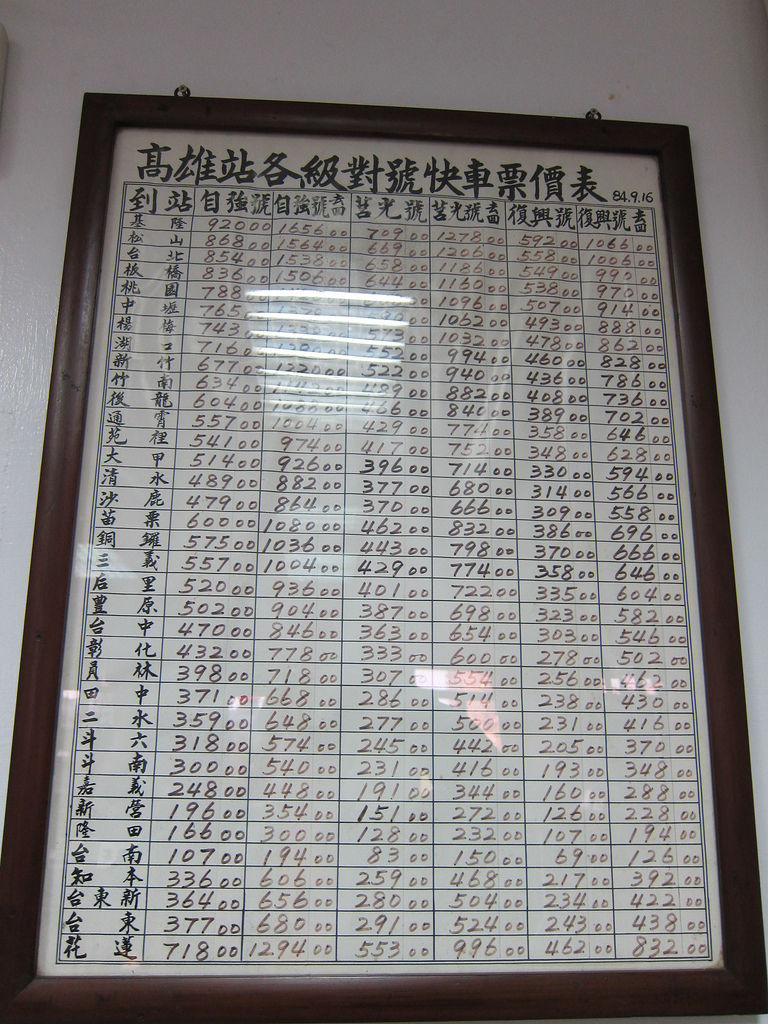 高雄站各級對號快車票價表 84.9.16
到站 自強號 自強號 莒光號 莒光號 復興號 復興號
基隆 92000 165600 70900 127800 59200 106600
松山 86800 156400 66900 120600 55800 100600
台北 85400 153800 65800 118600 54900 99000
板橋 83600 150600 64400 116000 53800 97000
桃園 78800 109600 50700 91400
中壢 76500 106200 49300 88800
楊梅 74300 57300 103200 47800 86200
湖口 71600 55200 99400 46000 82800
新竹 67700 122000 52200 94000 43600 78600
竹南 63400 114200 48900 88200 40800 73600
後龍 60400 108800 46600 84000 38900 70200
通霄 55700 100400 42900 77400 35800 64600
苑裡 54100 97400 41700 75200 34800 62800
大甲 51400 92600 39600 71400 33000 59400
清水 48900 88200 37700 68000 31400 56600
沙鹿 47900 86400 37000 66600 30900 55800
苗栗 60000 108000 46200 83200 38600 69600
銅鑼 57500 103600 44300 79800 37000 66600
三義 55700 100400 42900 77400 35800 64600
后里 52000 93600 40100 72200 33500 60400
豐原 50200 90400 38700 69800 32300 58200
台中 47000 84600 36300 65400 30300 54600
彰化 43200 77800 33300 60000 27800 50200
員林 39800 71800 30700 55400 25600 46200
田中 37100 66800 28600 51400 23800 43000
二水 35900 64800 27700 50000 23100 41600
斗六 31800 57400 24500 44200 20500 37000
斗南 30000 54000 23100 41600 19300 34800
嘉義 24800 44800 19100 34400 16000 28800
新營 19600 35400 15100 27200 12600 22800
隆田 16600 30000 12800 23200 10700 19400
台南 10700 19400 8300 15000 6900 12600
知本 33600 60600 25900 46800 21700 39200
台東新 36400 65600 28000 50400 23400 42200
台東 37700 68000 29100 52400 24300 43800
花蓮 71800 129400 55300 99600 46200 83200